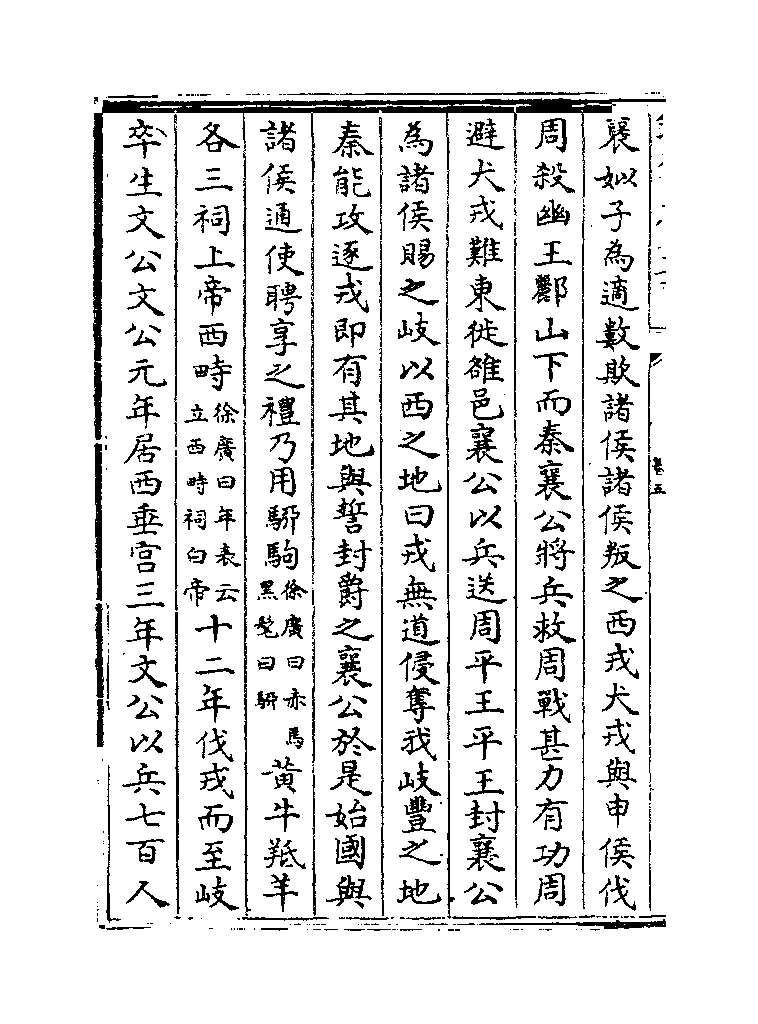 褒姒子為適數欺諸侯諸侯叛之西戎犬戎與申侯伐
周殺幽王酈山下而秦襄公將兵救周戰甚力有功周
避犬戎難東徙雒邑襄公以兵送周平王平王封襄公
為諸侯賜之岐以西之地曰戎無道侵奪我岐豐之地
秦能攻逐戎即有其地與誓封爵之襄公於是始國與
諸侯通使聘享之禮乃用駵駒徐廣曰赤馬黑髦曰駵黃牛羝羊
各三祠上帝西畤徐廣曰年表云立西畤祠白帝十二年伐戎而至岐
卒生文公文公元年居西垂宫三年文公以兵七百人
卷五